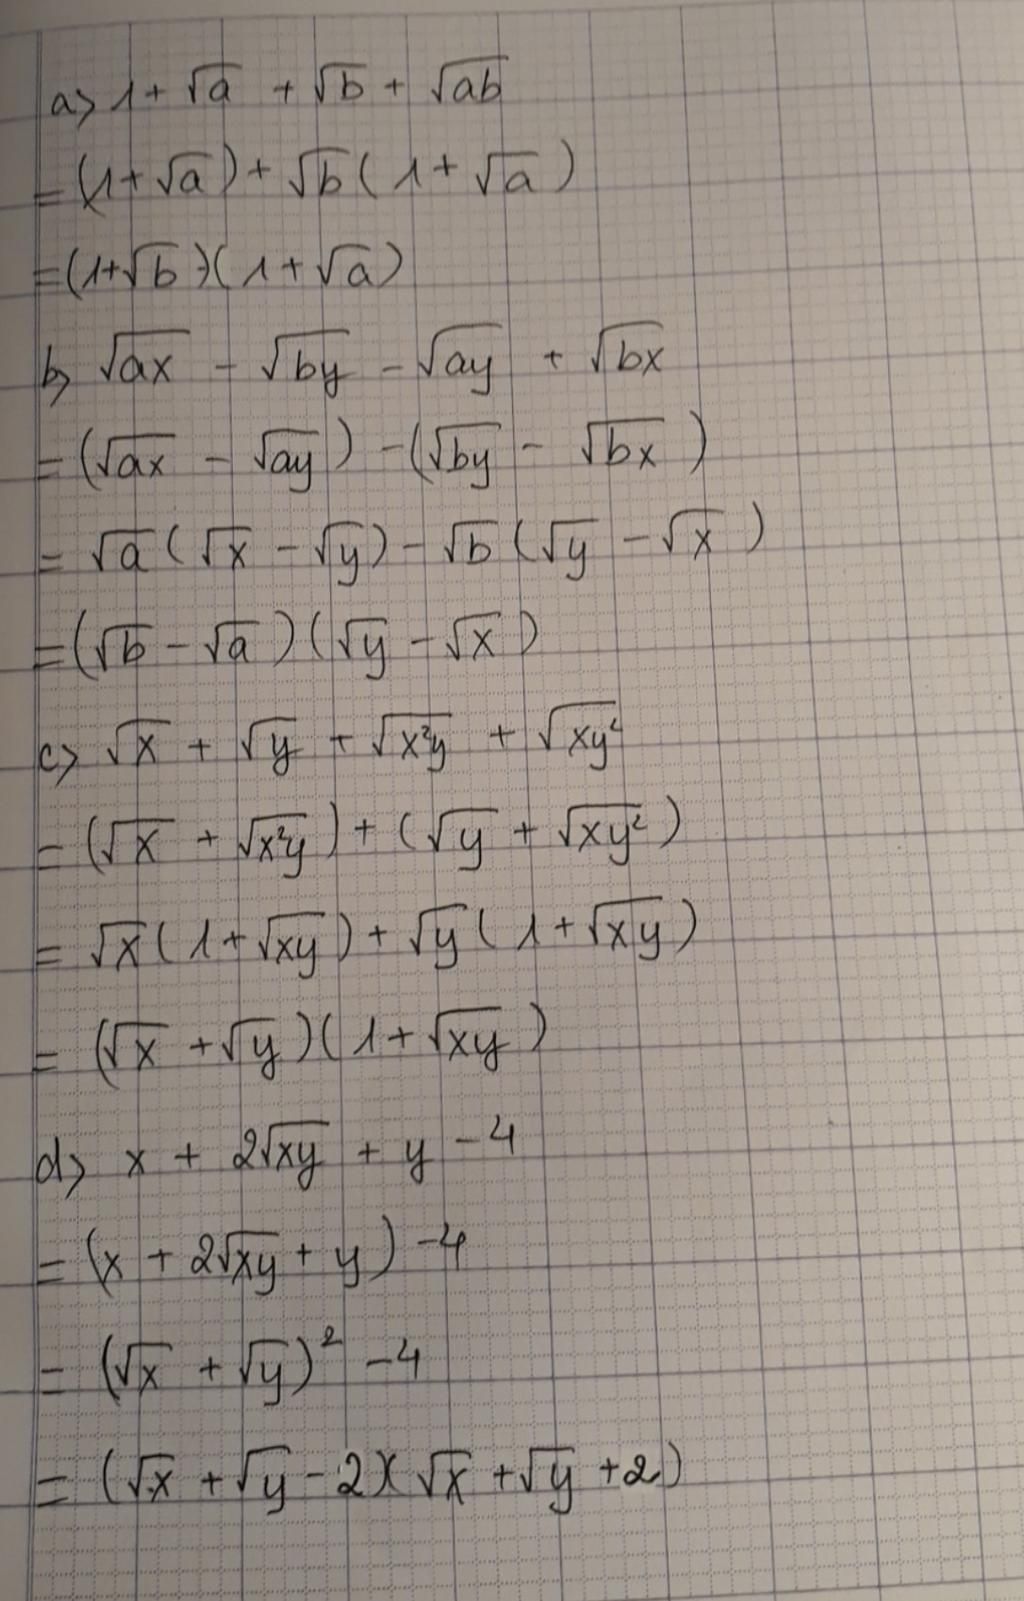 a> 1 + √a + √b + √ab
= (1 + √a) + √b (1 + √a)
= (1 + √b)(1 + √a)
b> √ax - √by - √ay + √bx
= (√ax - √ay) - (√by - √bx)
= √a (√x - √y) - √b (√y - √x)
= (√b - √a)(√y - √x)
c> √x + √y + √x²y + √xy²
= (√x + √x²y) + (√y + √xy²)
= √x (1 + √xy) + √y (1 + √xy)
= (√x + √y)(1 + √xy)
d> x + 2√xy + y - 4
= (x + 2√xy + y) - 4
= (√x + √y)² - 4
= (√x + √y - 2)(√x + √y + 2)